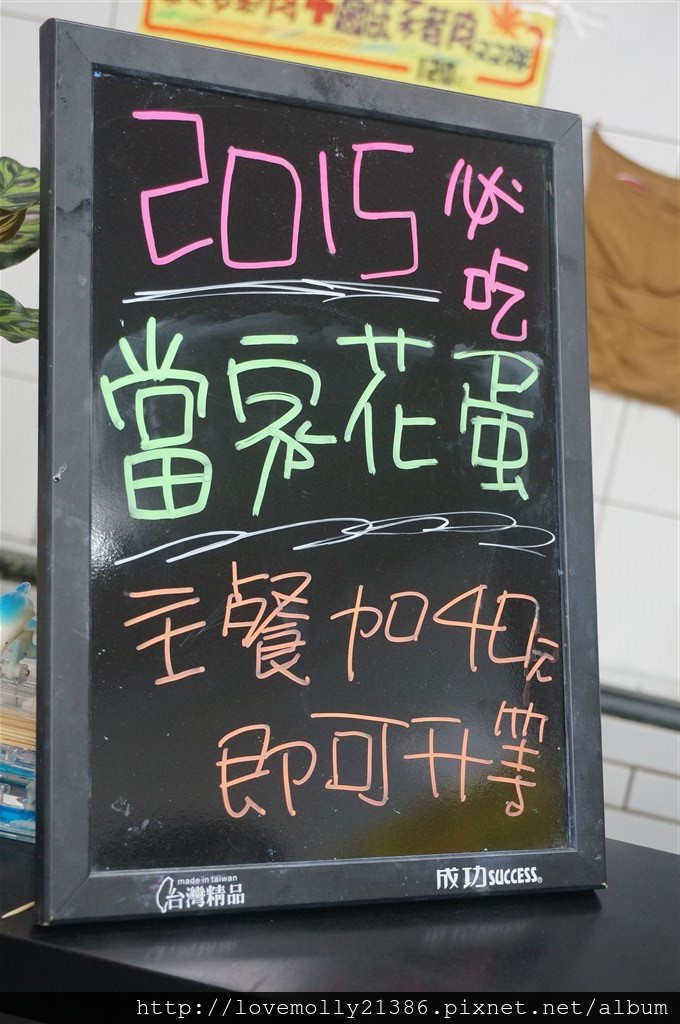 2015必吃
當家花蛋
主餐加40元
即可升等
made in taiwan
台灣精品
成功SUCCESS®
http://lovemolly21386.pixnet.net/album